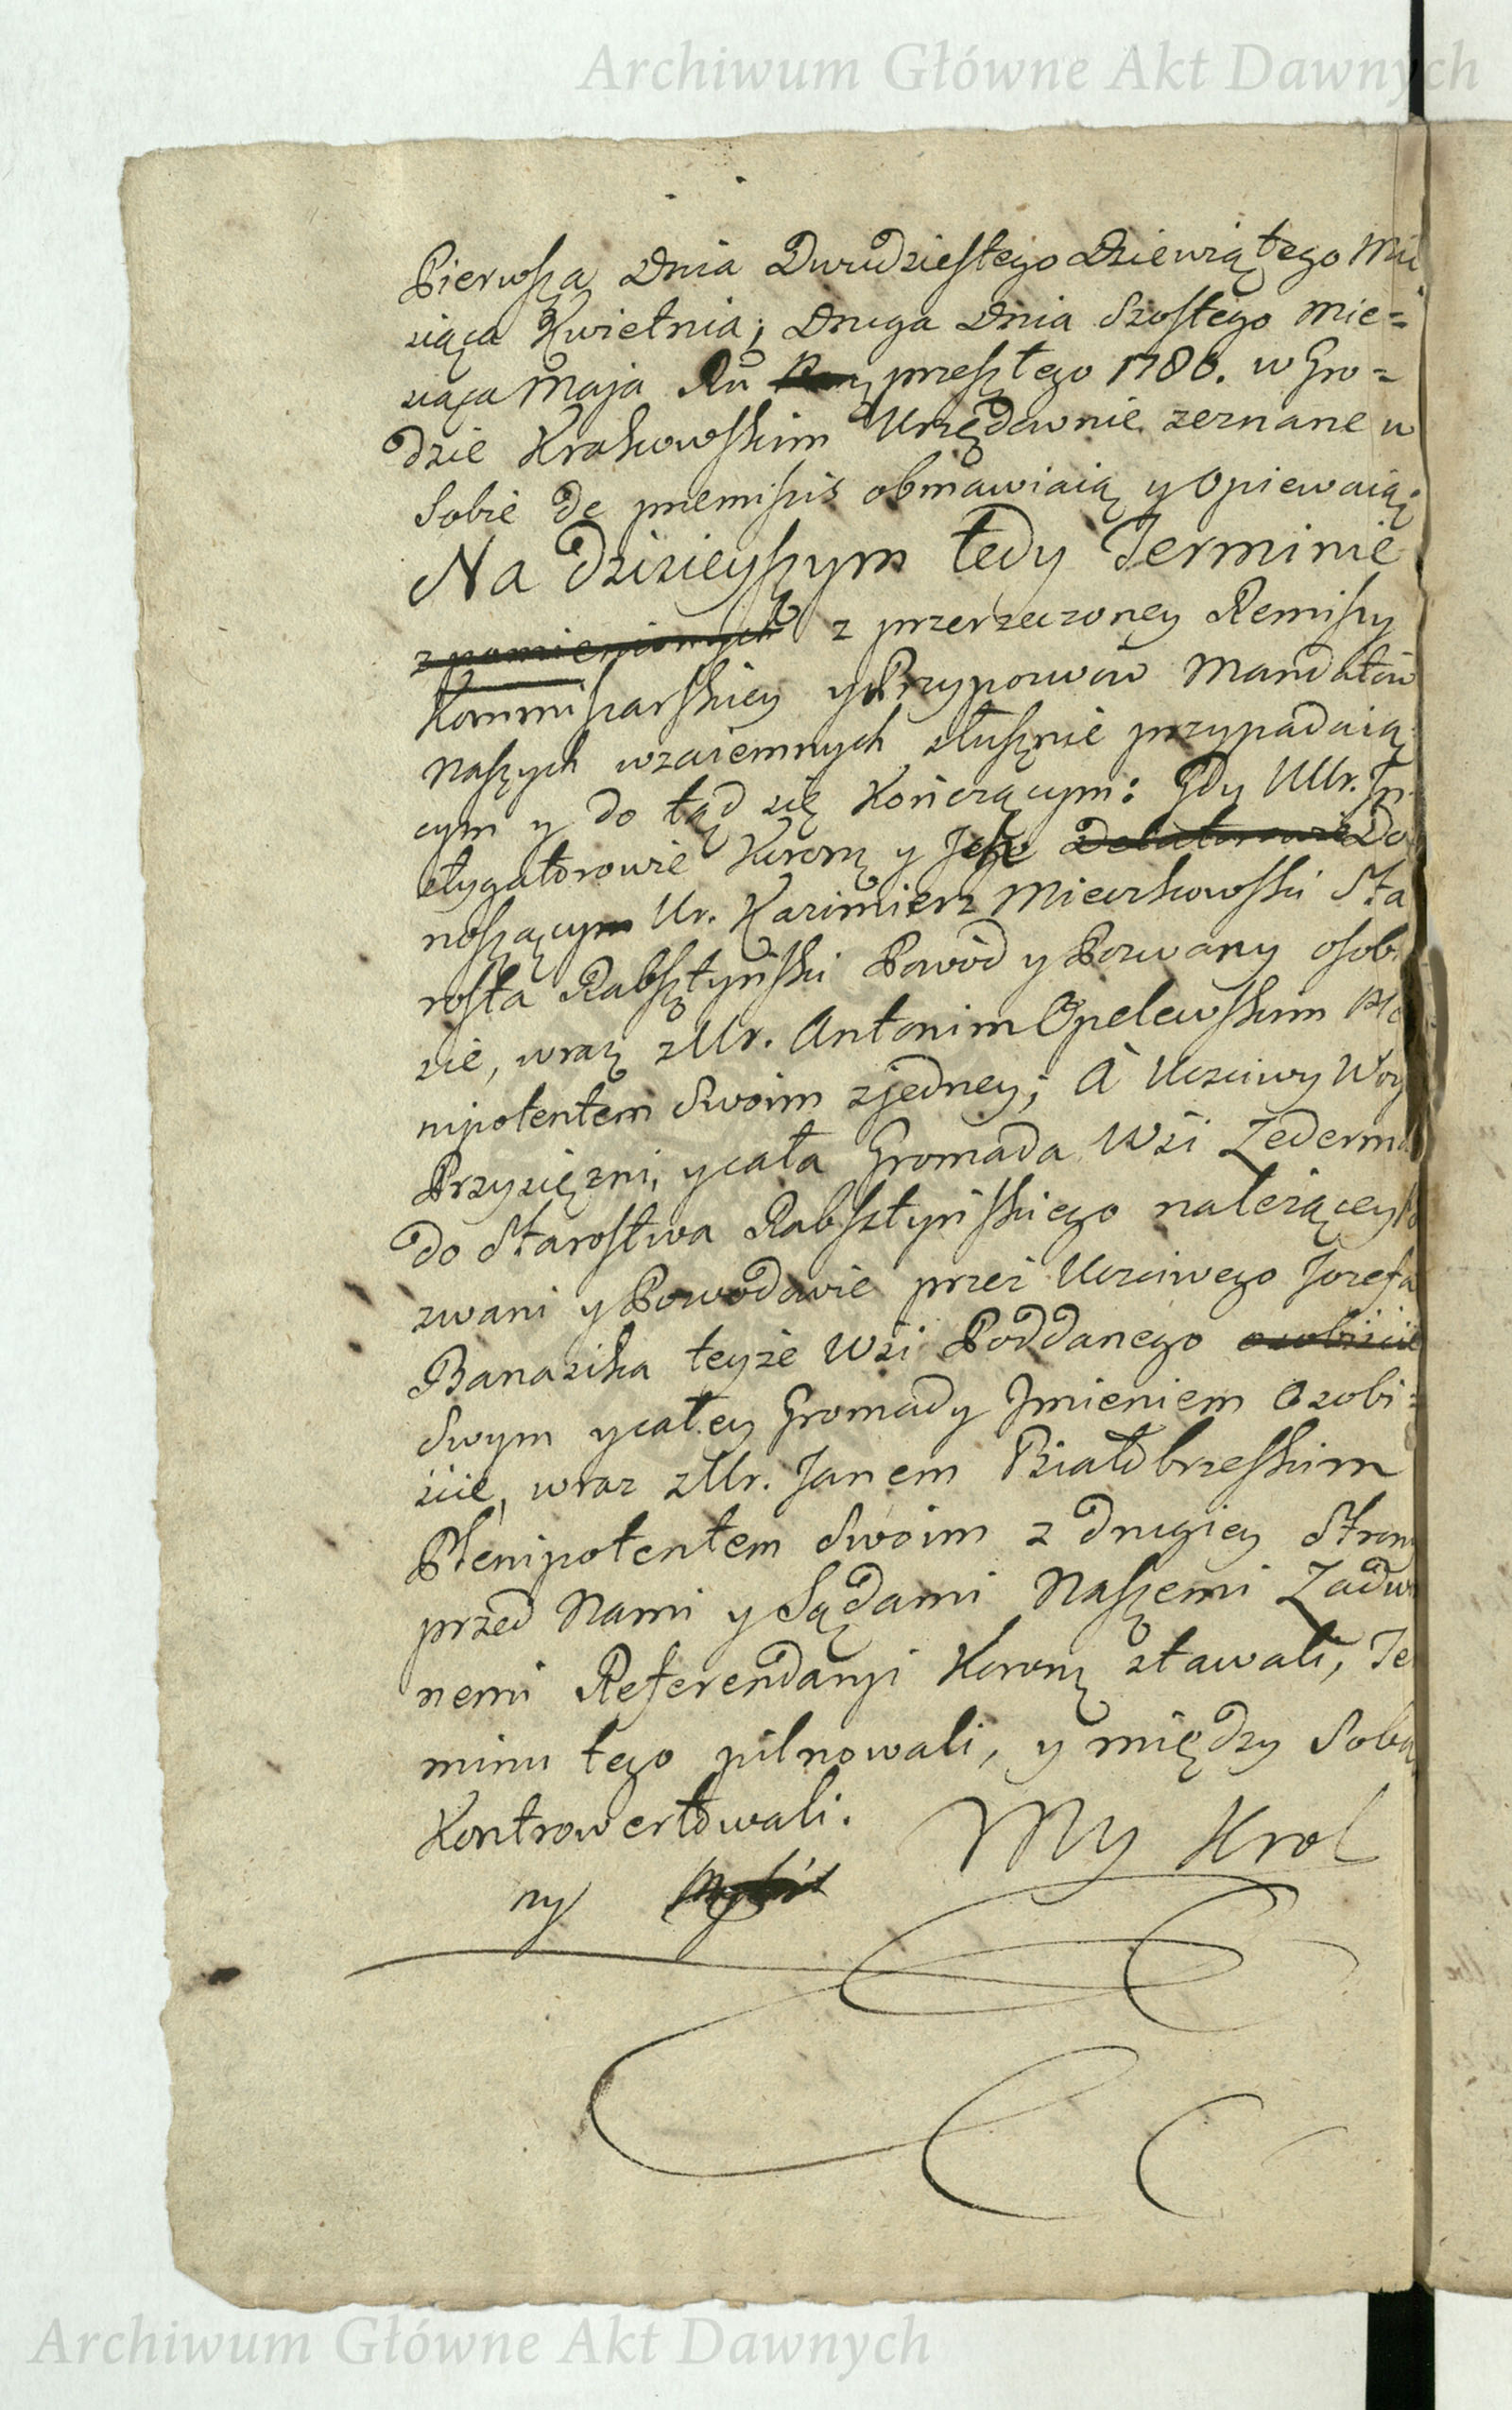 Archiwum Główne Akt Dawnych
Pierwszą Dnia Dwudziestego Dziewiątego Mie
siąca Kwietnia; Druga Dnia Szostego Mie=
siąca Maja Ru przeszłego 1786. w Gro=
dzie Krakowskim Urzędownie zeznane w
Sobie de premissis obmawiaią y Opiewaią.
Na Dzisieyszym tedy Terminie
z pomienionych z przerzeczoney Remissy
Kommissarskiey y Przypozwow Mandatow
Naszych wzaiemnych słusznie przypadaią
cym y do tąd się Kończącym: Gdy Ur. In
stygatorowie Korony y Jch Delatorowie Do
noszącym Ur. Kazimierz Mieczkowski Sta
rosta Rabsztyński Powod y Pozwany osobi
cie, wraz z Ur. Antonim Opelewskim Ple
nipotentem Swoim z jedney; A Uczciwy Woy
Przysiężni, y cała Gromada Wsi Zederma
do Starostwa Rabsztyńskiego należącey Po
zwani y Powodowie przez Uczciwego Jozefa
Banasika teyże Wsi Poddanego osobiście
Swym y całey Gromady Jmieniem Osobi=
ście, wraz z Ur. Janem Białobrzeskim
Plenipotentem Swoim z Drugiey Strony
przed Nami y Sądami Naszemi Zadwo
nemi Referendaryi Korony stawali, Ter
minu tego pilnowali, y między Sobą
Kontrowertowali.
My Krol
ny
Archiwum Główne Akt Dawnych